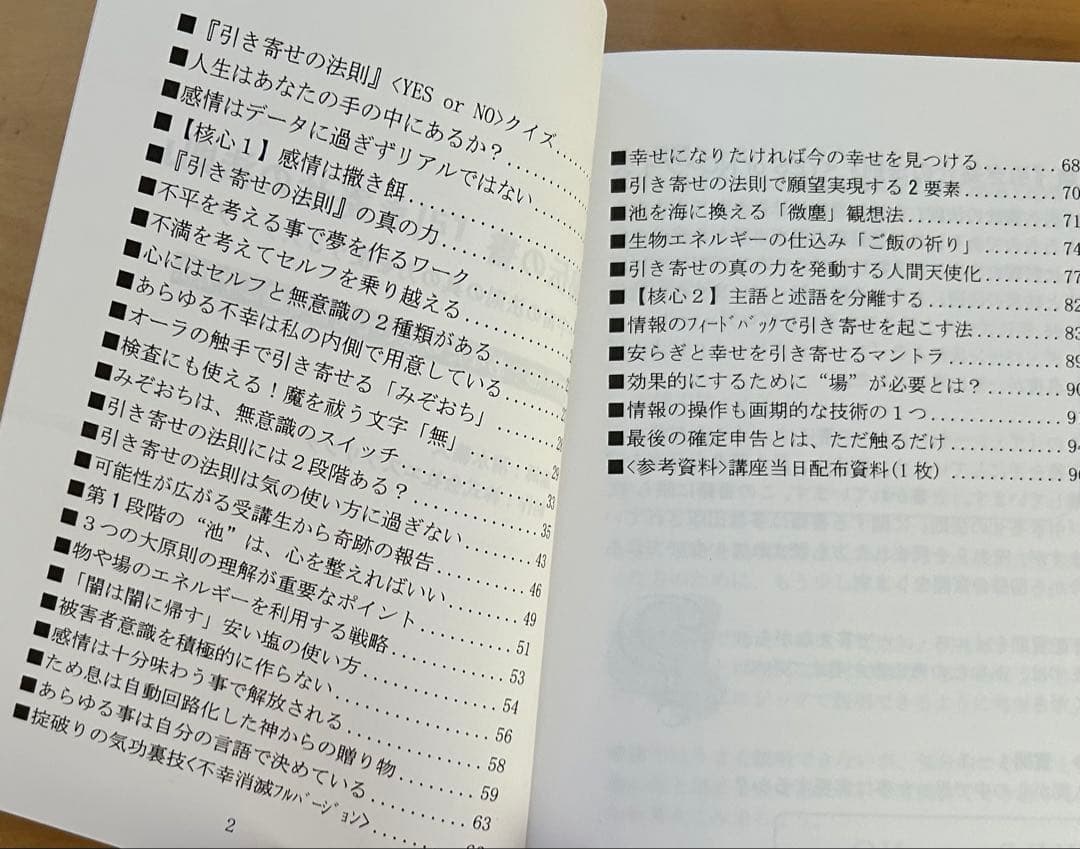 ■『引き寄せの法則』<YES or NO>クイズ......
■人生はあなたの手の中にあるか?......
■感情はデータに過ぎずリアルではない
■【核心1】感情は撒き餌......
■『引き寄せの法則』の真の力......
■不平を考える事で夢を作るワーク
■不満を考えてセルフを乗り越える......
■心にはセルフと無意識の2種類がある
■あらゆる不幸は私の内側で用意している
■オーラの触手で引き寄せる「みぞおち」
■検査にも使える!魔を祓う文字「無」
■みぞおちは、無意識のスイッチ......29
■引き寄せの法則には2段階ある?......33
■引き寄せの法則は気の使い方に過ぎない......35
■可能性が広がる受講生から奇跡の報告......43
■第1段階の“池”は、心を整えればいい......46
■3つの大原則の理解が重要なポイント......49
■物や場のエネルギーを利用する戦略......51
■「闇は闇に帰す」安い塩の使い方......53
■被害者意識を積極的に作らない......54
■感情は十分味わう事で解放される......56
■ため息は自動回路化した神からの贈り物......58
■あらゆる事は自分の言語で決めている......59
■掟破りの気功裏技<不幸消滅ﾌﾙﾊﾞｰｼﾞｮﾝ>......63
2
■幸せになりたければ今の幸せを見つける......68
■引き寄せの法則で願望実現する2要素......70
■池を海に換える「微塵」観想法......71
■生物エネルギーの仕込み「ご飯の祈り」......74
■引き寄せの真の力を発動する人間天使化......77
■【核心2】主語と述語を分離する......82
■情報のﾌｨｰﾄﾞﾊﾞｯｸで引き寄せを起こす法......83
■安らぎと幸せを引き寄せるマントラ......89
■効果的にするために“場”が必要とは?......90
■情報の操作も画期的な技術の1つ......
■最後の確定申告とは、ただ触るだけ......
■<参考資料>講座当日配布資料(1枚)......